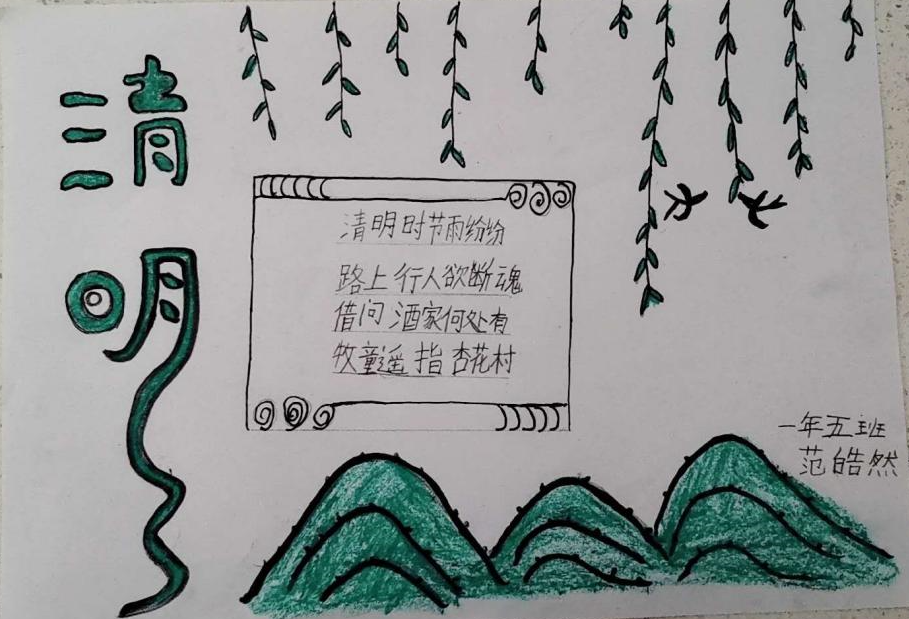 清明
清明时节雨纷纷
路上行人欲断魂
借问酒家何处有
牧童遥指杏花村
一年五班
范皓然